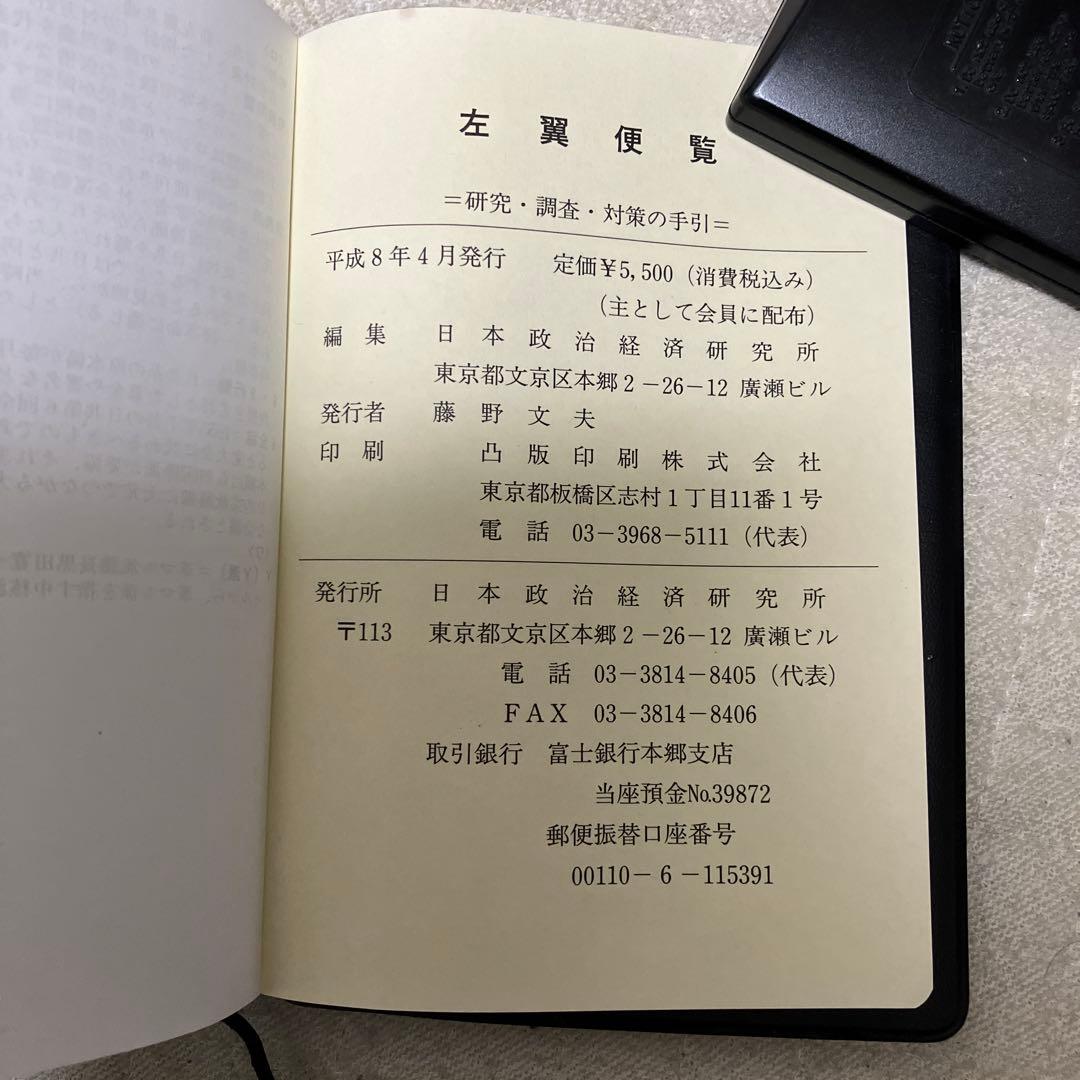 左翼便覧
=研究・調査・対策の手引=
平成8年4月発行 定価¥5,500(消費税込み)
(主として会員に配布)
編集 日本政治経済研究所
東京都文京区本郷2-26-12 廣瀬ビル
発行者 藤野文夫
印刷 凸版印刷株式会社
東京都板橋区志村1丁目11番1号
電話 03-3968-5111(代表)
発行所 日本政治経済研究所
〒113 東京都文京区本郷2-26-12 廣瀬ビル
電話 03-3814-8405(代表)
FAX 03-3814-8406
取引銀行 富士銀行本郷支店
当座預金No.39872
郵便振替口座番号
00110-6-115391